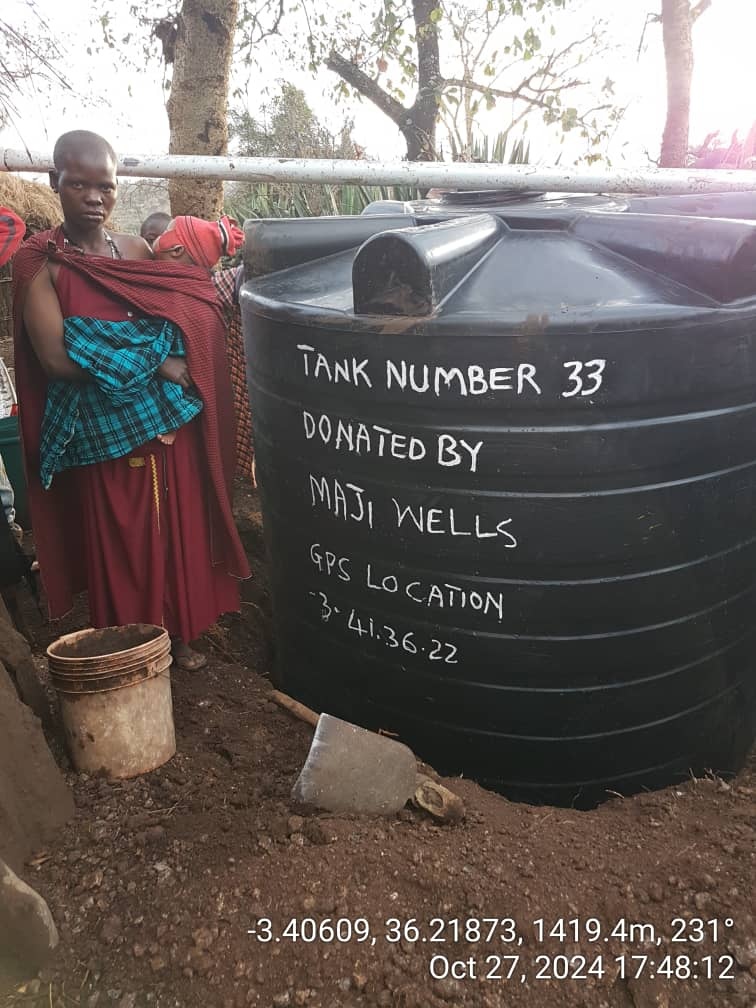 TANK NUMBER 33
DONATED BY
MAJI WELLS
GPS LOCATION
-3.41.36.22
-3.40609, 36.21873, 1419.4m, 231°
Oct 27, 2024 17:48:12